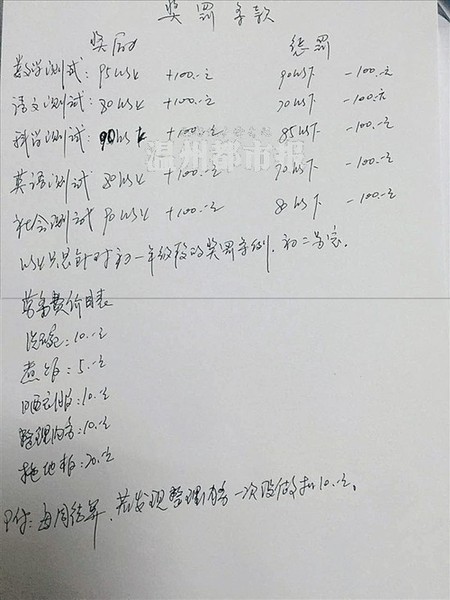 奖罚条款
奖励 惩罚
数学测试: 95以上 +100.-元 90以下 -100.元
语文测试: 80以上 +100.-元 70以下 -100.元
科学测试: 90以上 +100.-元 85以下 -100.-元
温州都市报
英语测试 80以上 +100.-元 70以下 -100.-元
社会测试 90以上 +100.-元 80以下 -100.-元
以上只是针对初一年级段的奖罚条例,初二另定.
劳务费价目表
洗碗: 10.-元
煮饭: 5.-元
晒衣服: 10.-元
整理内务: 10.-元
拖地板: 20.元
附: 每周结算,若发现整理内务一次没做扣10.-元。